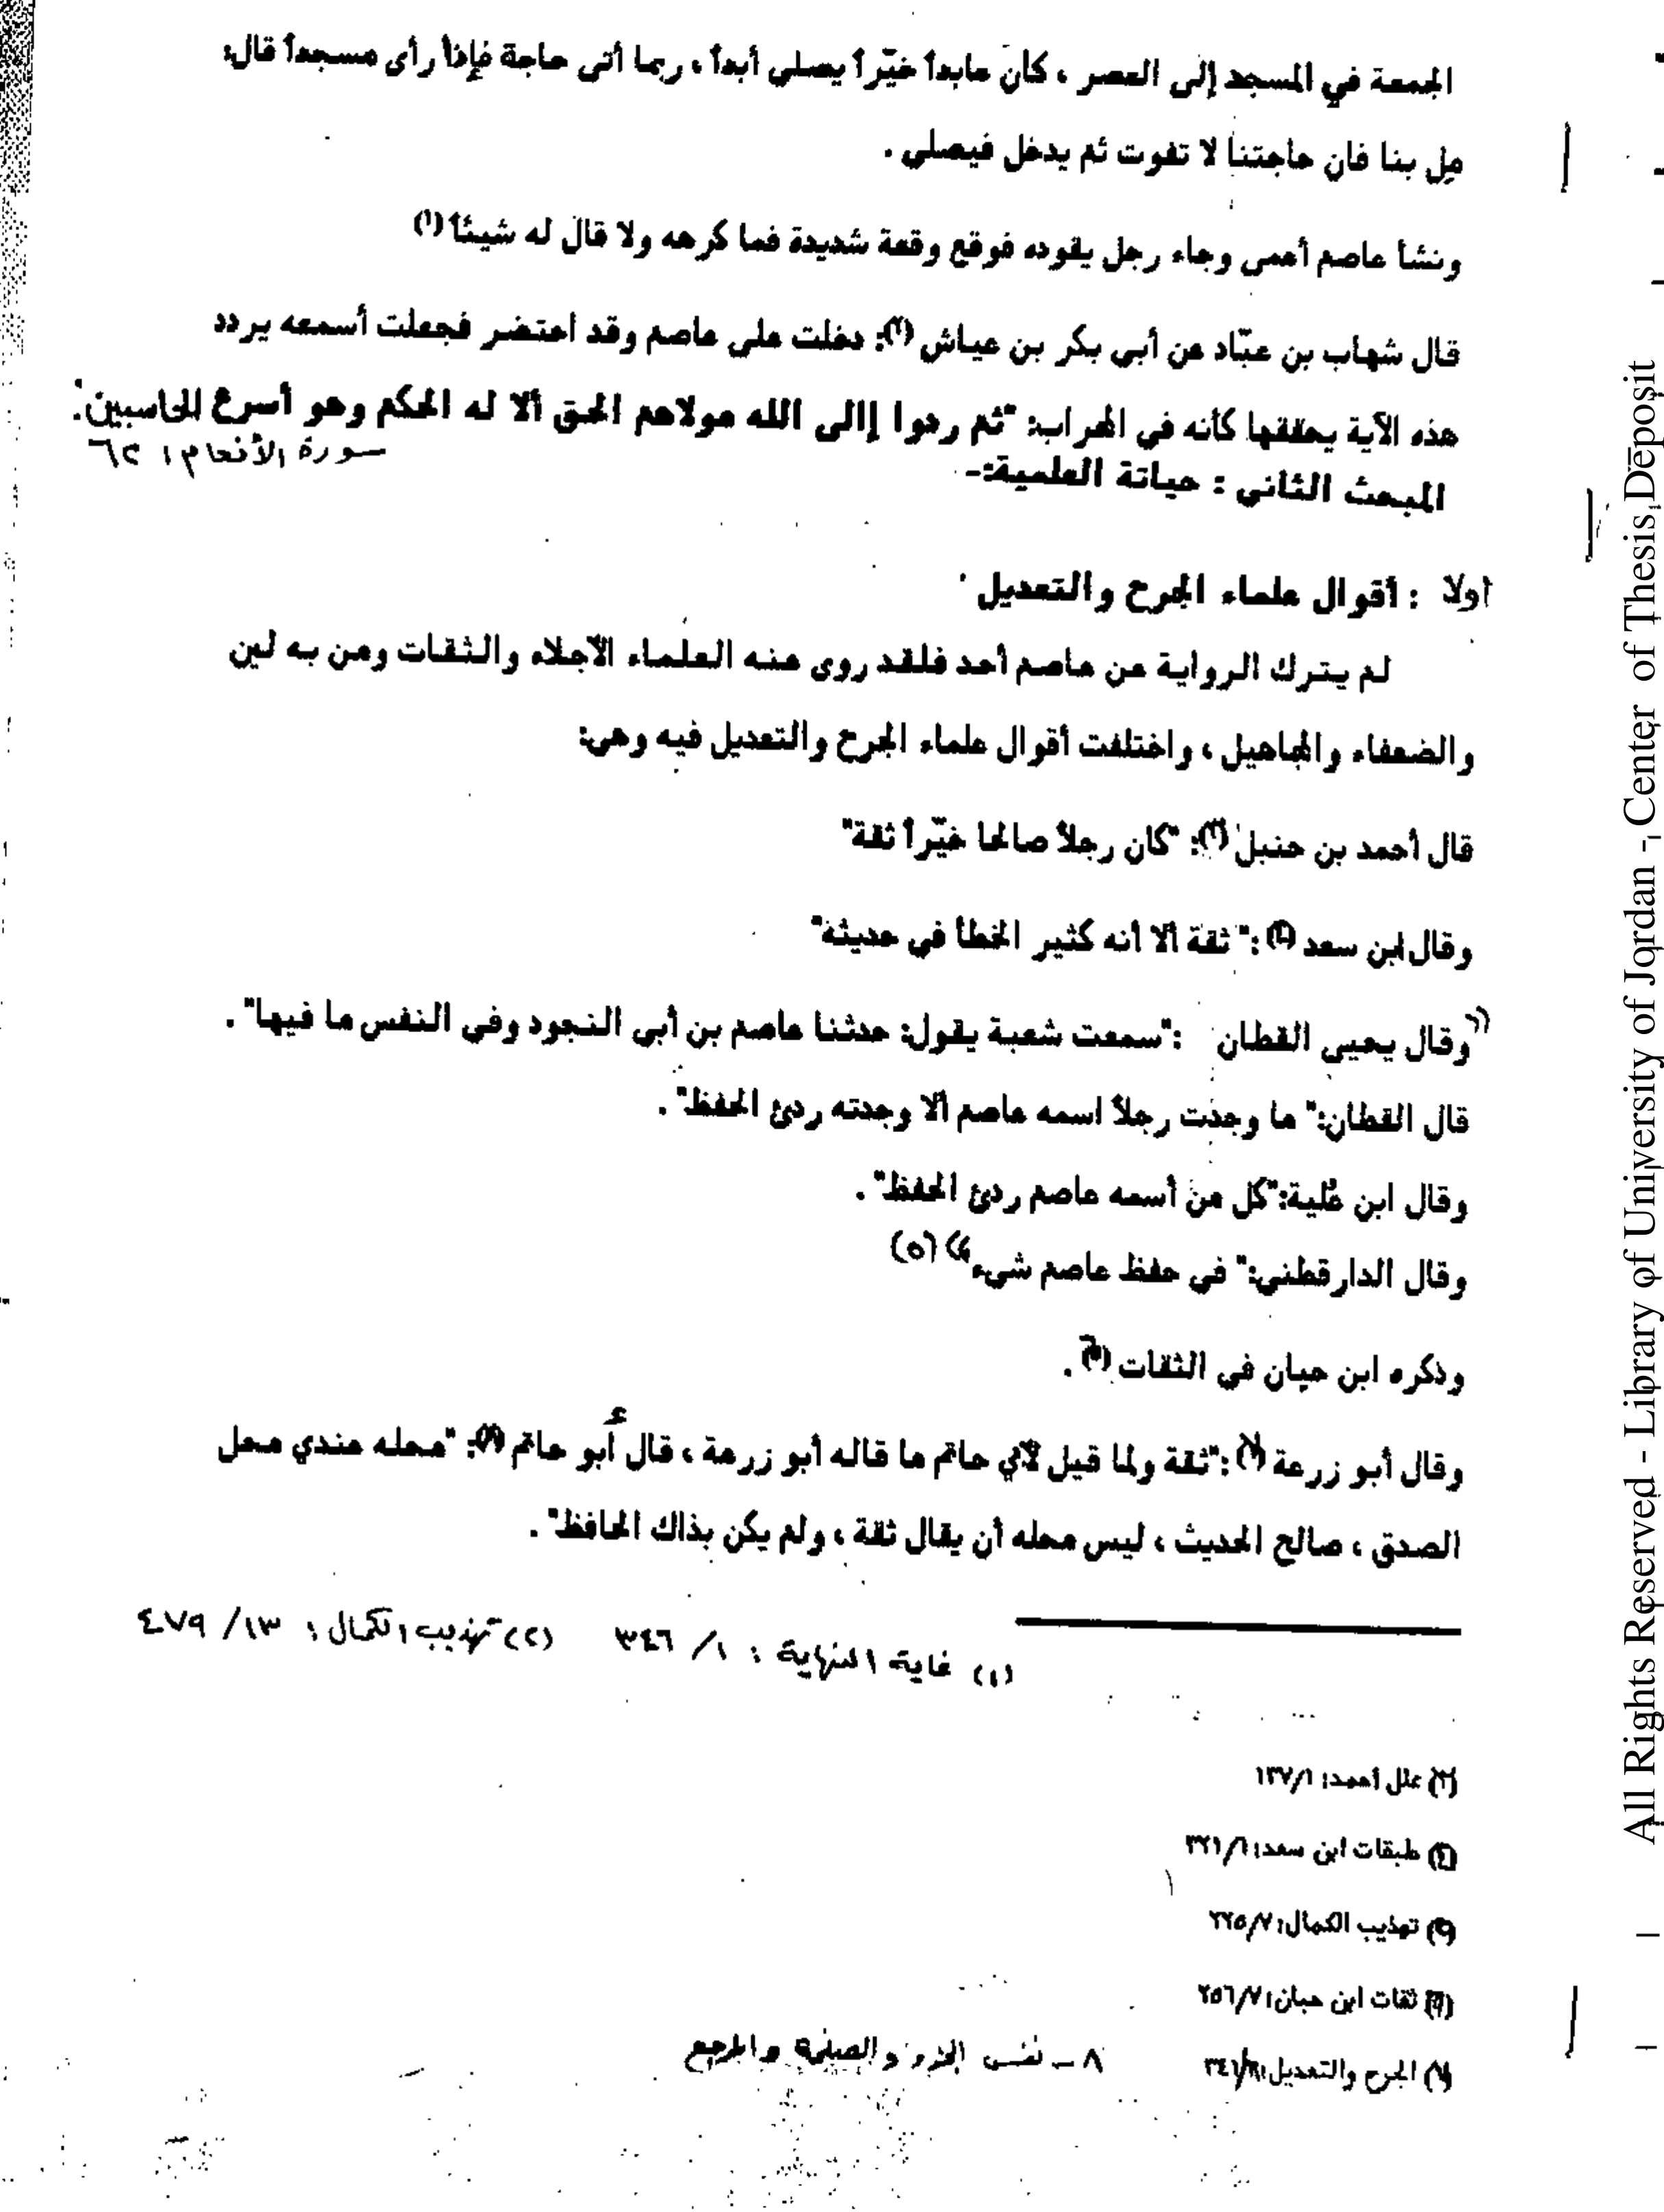 الجمعة في المسجد إلى العصر ، كان عابداً خيّراً يصلي أبداً ، ربما أتى حاجة فإذا رأى مسجداً قال:
مِل بنا فان حاجتنا لا تفوت ثم يدخل فيصلي .
ونشأ عاصم أعمى وجاء رجل يقوده فوقع وقعة شديدة فما كرهه ولا قال له شيئاً (١)
قال شهاب بن عبّاد عن أبي بكر بن عياش (٢): دخلت على عاصم وقد احتضر فجعلت أسمعه يردد
هذه الآية يحققها كأنه في المحراب: "ثم ردوا إالى الله مولاهم الحق ألا له الحكم وهو أسرع الحاسبين".
سورة الأنعام: ٦٢
المبحث الثاني : حياتة العلمية:-
اولا : أقوال علماء الجرح والتعديل .
لم يترك الرواية عن عاصم أحد فلقد روى عنه العلماء الأجلاء والثقات ومن به لين
والضعفاء والمجاهيل ، واختلفت أقوال علماء الجرح والتعديل فيه وهي:
قال أحمد بن حنبل (٣): "كان رجلاً صالحا خيّراً ثقة"
وقال ابن سعد (٤) :" ثقة ألا أنه كثير الخطأ في حديثة"
"وقال يحيى القطان :"سمعت شعبة يقول: حدثنا عاصم بن أبي النجود وفي النفس ما فيها" .
قال القطان:" ما وجدت رجلاً اسمه عاصم ألا وجدته ردئ الحفظ" .
وقال ابن عُلية:"كل من أسمه عاصم ردئ الحفظ" .
وقال الدارقطني:" في حفظ عاصم شيء" (٥)
وذكره ابن حبان في الثقات (٦) .
وقال أبو زرعة (٧) :"ثقة ولما قيل لأبي حاتم ما قاله أبو زرعة ، قال أبو حاتم (٨): "محله عندي محل
الصدق ، صالح الحديث ، ليس محله أن يقال ثقة ، ولم يكن بذاك الحافظ" .
(١) غاية النهاية : ١/ ٣٤٦ (٢) تهذيب الكمال : ١٣/ ٤٧٩
(٣) علل أحمد: ١٣٧/١
(٤) طبقات ابن سعد: ٣٢١/٦
(٥) تهذيب الكمال: ٢٢٥/٧
(٦) ثقات ابن حبان: ٢٥٦/٧
(٧) الجرح والتعديل: ٣٤١/٦ ٨ - نفس الجزء والصفحة والمرجع
All Rights Reserved - Library of University of Jordan - Center of Thesis Deposit